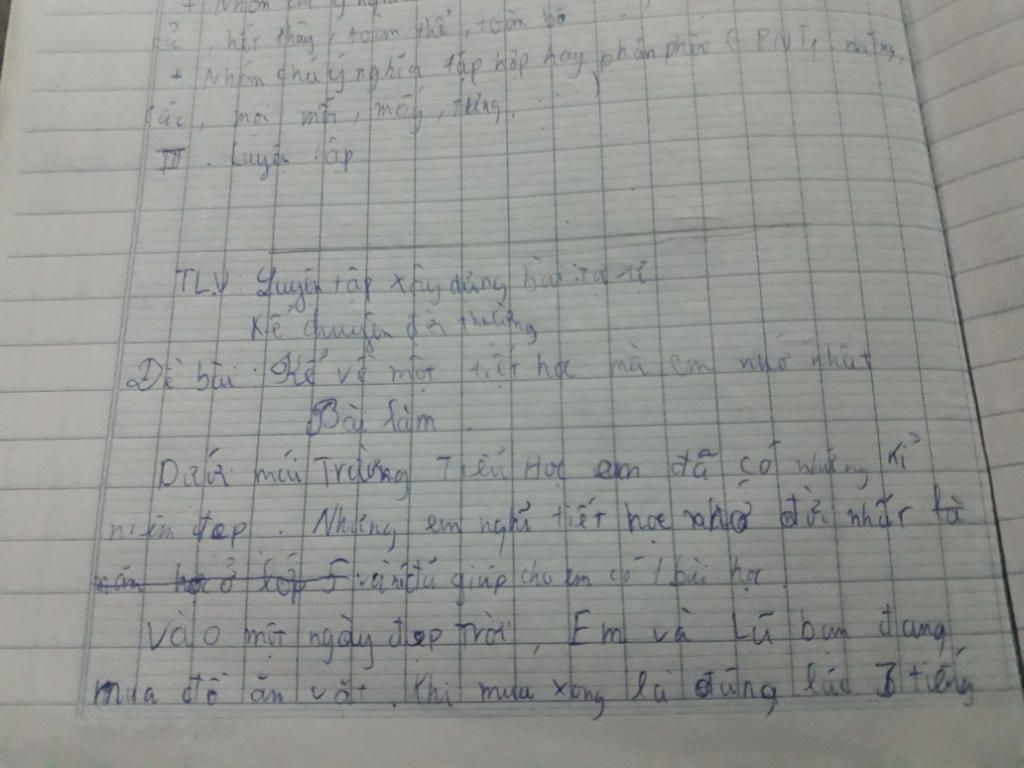 + Nhóm chỉ ý nghĩa
cả, hết thảy, toàn thể, toàn bộ
+ Nhóm chỉ ý nghĩa tập hợp hay phân phối ( PNT, những,
các, mọi mỗi, mấy, từng, ......)
III. Luyện tập
TLV: Luyện tập xây dựng bài tự sự
Kể chuyện đời thường
Đề bài: Kể về một tiết học mà em nhớ nhất
Bài làm
Dưới mái Trường Tiểu Học em đã có những kỉ
niệm đẹp. Nhưng em nghĩ tiết học nhớ đời nhất là
năm học ở lớp 5 vì nó đã giúp cho em có 1 bài học
Vào một ngày đẹp trời, Em và Lũ bạn đang
mua đồ ăn vặt. Khi mua xong là đúng lúc 3 tiếng